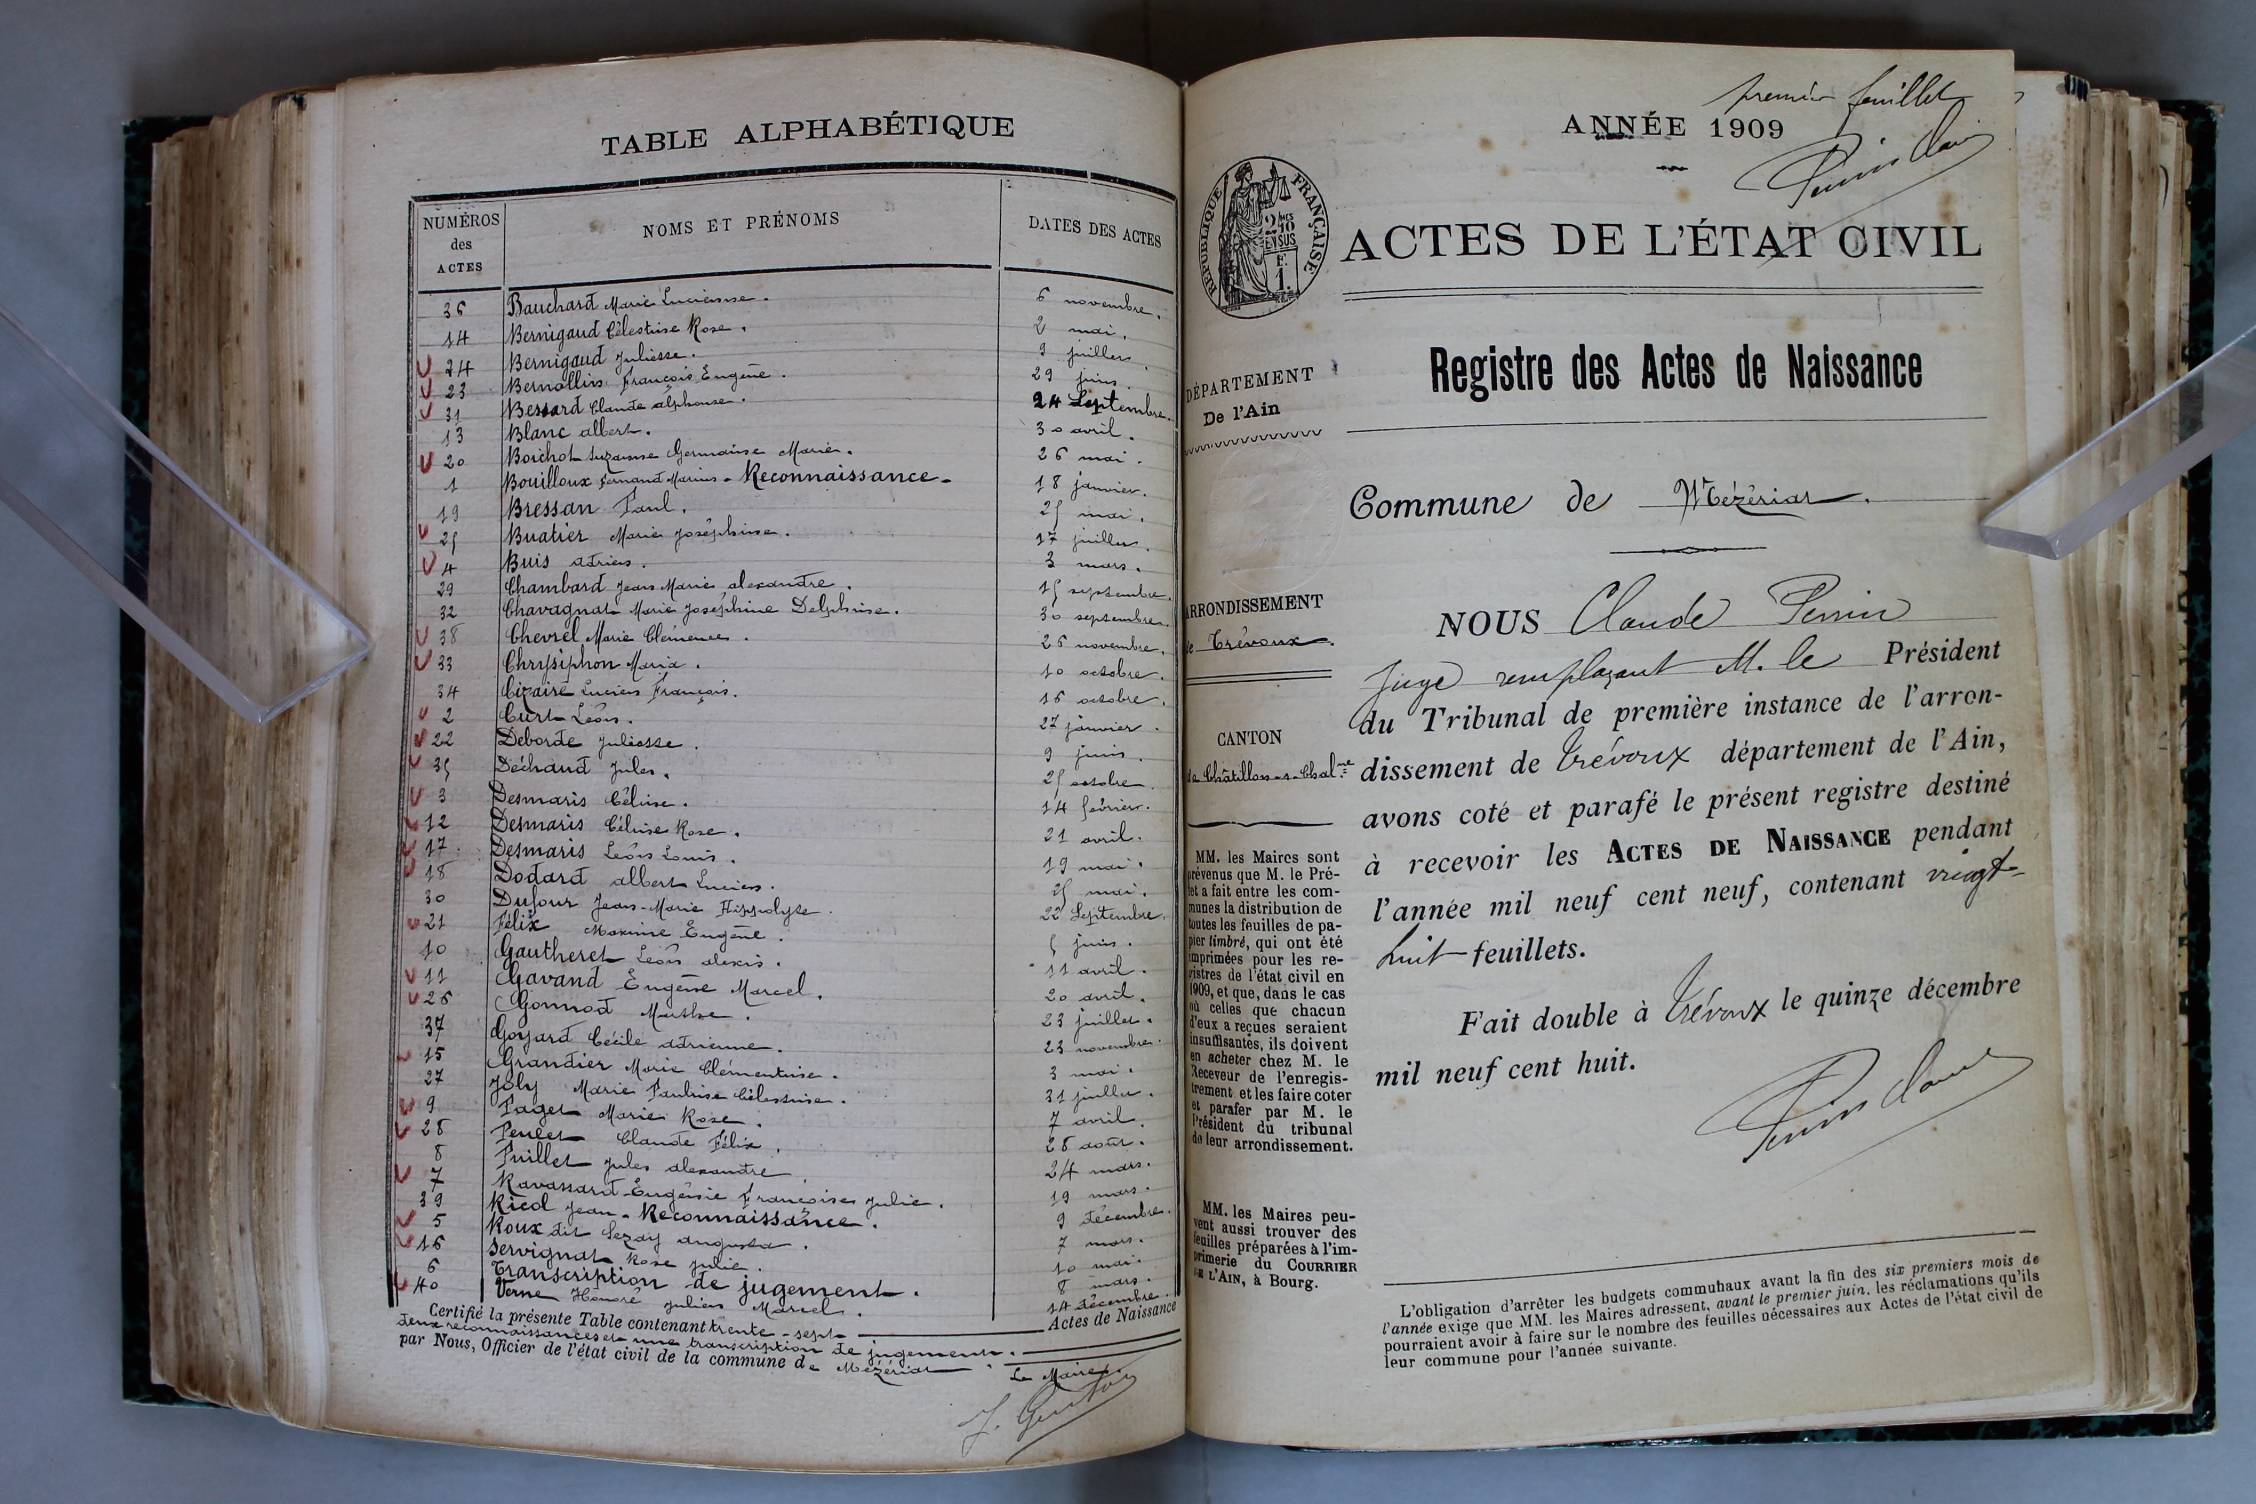 TABLE ALPHABÉTIQUE
NUMÉROS des ACTES NOMS ET PRÉNOMS DATES DES ACTES
36 Bauchard Marie Lucienne. 6 novembre.
14 Bernigaud Célestine Rose. 2 mai.
24 Bernigaud Juliesse. 9 juillet
23 Bernollin François Eugène. 29 juin.
31 Bessard Claude alphonse. 24 Septembre.
13 Blanc albert. 30 avril.
20 Boichot Suzanne Germaine Marie. 26 mai.
1 Bouilloux Fernand Marius - Reconnaissance - 18 janvier.
19 Bressan Paul. 25 mai.
25 Buatier Marie Joséphine. 17 juillet.
4 Buis adrien. 3 mars.
29 Chambard Jean Marie alexandre. 15 septembre.
32 Chavagnat Marie Joséphine Delphine. 30 septembre.
38 Chevrel Marie Clémence. 26 novembre.
33 Chrysiphon Maria. 10 octobre.
34 Cizaire Lucien François. 16 octobre.
2 Curt Léon. 27 janvier.
22 Deborde Juliesse. 9 juin.
35 Déchaud Jules. 25 octobre
3 Desmaris Céline. 14 février.
12 Desmaris Céline Rose. 21 avril.
17. Desmaris Léon Louis. 19 mai.
18 Dodard albert Lucien. 25 mai.
30 Dufour Jean-Marie Hippolyte. 22 Septembre.
21 Félix Maxime Eugène. 5 juin.
10 Gautheret Léon alexis. 11 avril.
11 Gavand Eugène Marcel. 20 avril.
26 Gonnod Marthe. 23 juillet.
37 Goyard Cécile adrienne. 23 novembre.
15 Grandier Marie Clémentine. 3 mai.
27 Joly Marie Pauline Célestine. 31 juillet.
9 Paget Marie Rose. 7 avril.
28 Perret Claude Félix. 28 août.
8 Puillet Jules alexandre 24 mars.
7 Ravassard Eugénie Françoise Julie. 19 mars.
39 Ricol Jean - Reconnaissance. 9 décembre.
5 Roux dit Sezay augusta. 7 mars.
16 Servignat Rose Julie. 10 mai.
6 Transcription de jugement. 8 mars.
40 Verne Honoré Julien Marcel. 14 décembre.
Certifié la présente Table contenant trente-sept Actes de Naissance
deux reconnaissances et une transcription de jugement.
par Nous, Officier de l'état civil de la commune de Mézériat.
Le Maire,
premier feuillet
ANNÉE 1909
RÉPUBLIQUE FRANÇAISE
2/10 EN SUS
F. 1.
ACTES DE L'ÉTAT CIVIL
Registre des Actes de Naissance
DÉPARTEMENT
De l'Ain
ARRONDISSEMENT
de Trévoux.
CANTON
de Châtillon-s-Chalne
MM. les Maires sont
prévenus que M. le Pré-
fet a fait entre les com-
munes la distribution de
toutes les feuilles de pa-
pier timbré, qui ont été
imprimées pour les re-
gistres de l'état civil en
1909, et que, dans le cas
où celles que chacun
d'eux a reçues seraient
insuffisantes, ils doivent
en acheter chez M. le
Receveur de l'enregis-
trement et les faire coter
et parafer par M. le
Président du tribunal
de leur arrondissement.
MM. les Maires peu-
vent aussi trouver des
feuilles préparées à l'im-
primerie du COURRIER
DE L'AIN, à Bourg.
Commune de Mézériat.
NOUS Claude Perrin
Juge remplaçant M. le Président
du Tribunal de première instance de l'arron-
dissement de Trévoux département de l'Ain,
avons coté et parafé le présent registre destiné
à recevoir les ACTES DE NAISSANCE pendant
l'année mil neuf cent neuf, contenant vingt-
huit feuillets.
Fait double à Trévoux le quinze décembre
mil neuf cent huit.
L'obligation d'arrêter les budgets communaux avant la fin des six premiers mois de
l'année exige que MM. les Maires adressent, avant le premier juin, les réclamations qu'ils
pourraient avoir à faire sur le nombre des feuilles nécessaires aux Actes de l'état civil de
leur commune pour l'année suivante.